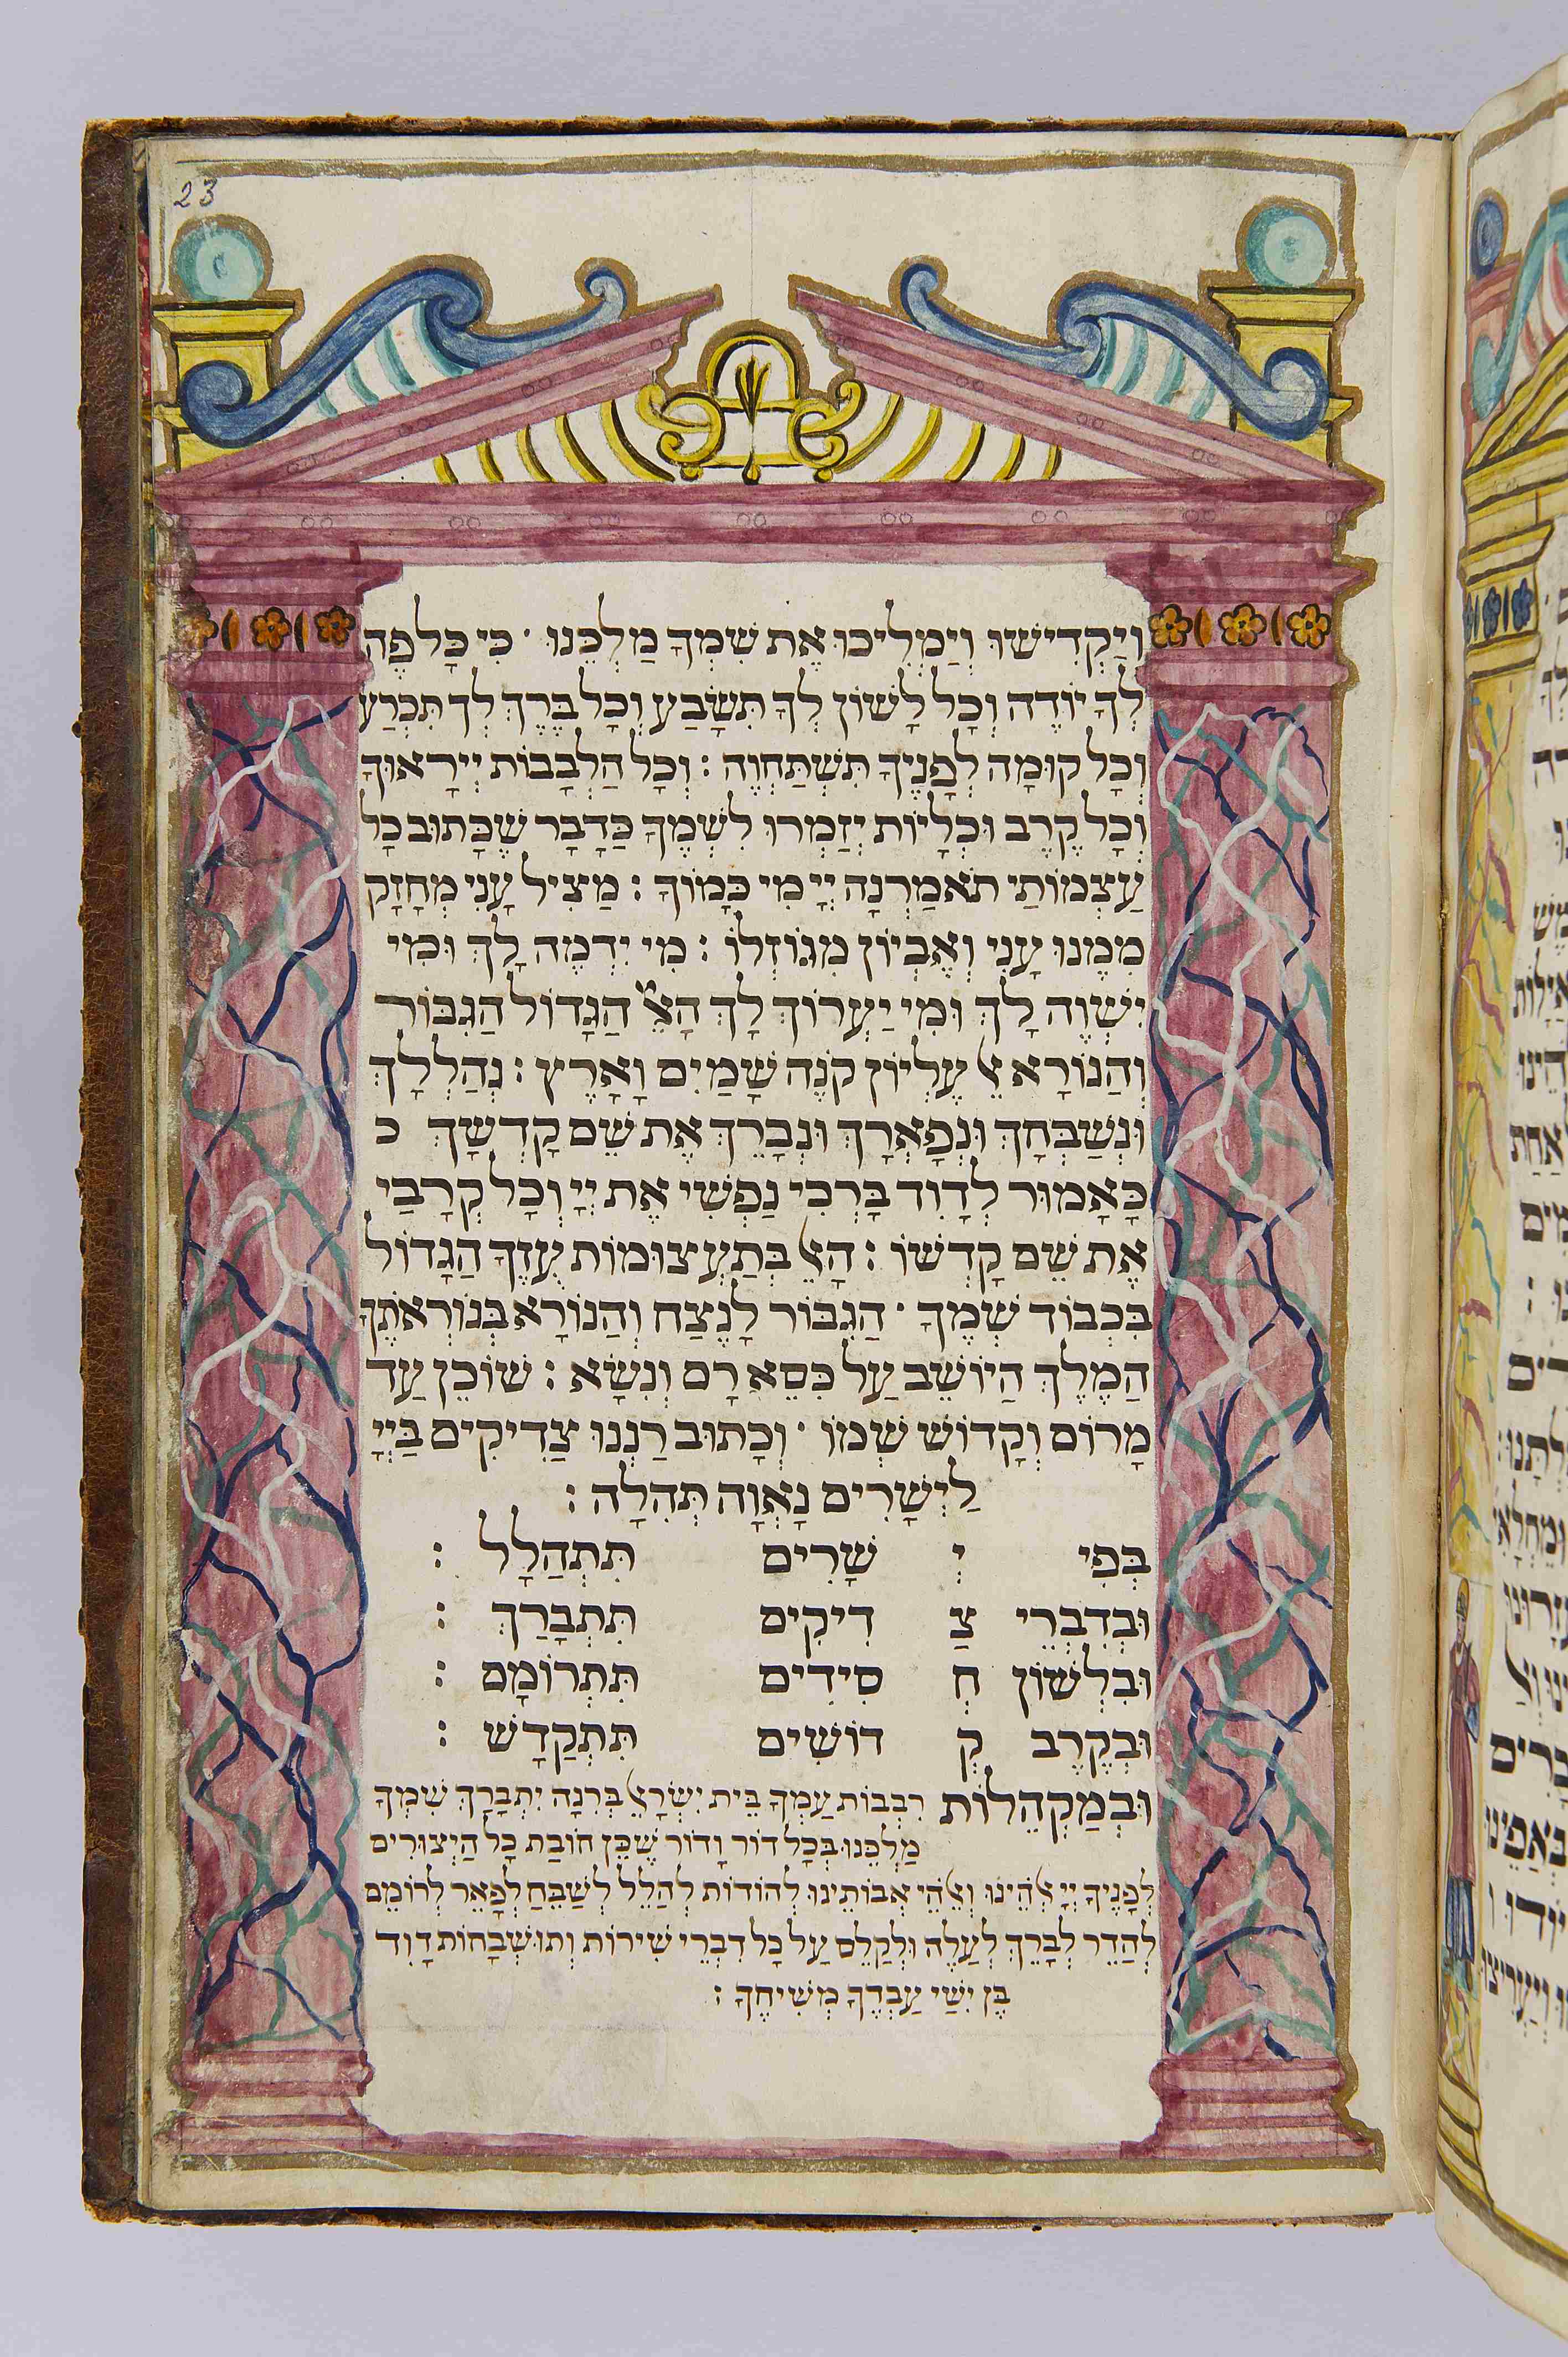 23
וְיַקְדִישׁוּ וְיַמְלִיכוּ אֶת שִׁמְךָ מַלְכֵּנוּ · כִּי כָּל פֶּה
לְךָ יוֹדֶה וְכָל לָשׁוֹן לְךָ תִּשָּׁבַע וְכָל בֶּרֶךְ לְךָ תִּכְרַע
וְכָל קוֹמָה לְפָנֶיךָ תִּשְׁתַּחֲוֶה : וְכָל הַלְבָבוֹת יְירָאוּךָ
וְכָל קֶרֶב וּכְלָיוֹת יְזַמְרוּ לִשְׁמֶךָ כַּדָבָר שֶׁכָּתוּב כָּל
עַצְמוֹתַי תֹּאמַרְנָה יְיָ מִי כָּמוֹךָ : מַצִיל עָנִי מְחָזָק
מִמֶנוּ עָנִי וְאֶבְיוֹן מִגּוֹזְלוֹ : מִי יִדְמֶה לָךְ וּמִי
יִשְׁוֶה לָךְ וּמִי יַעֲרוֹךְ לָךְ הָאֵל הַגָדוֹל הַגִבּוֹר
וְהַנוֹרָא אֵל עֶלְיוֹן קֹנֶה שָׁמַיִם וָאָרֶץ : נְהַלְלָךְ
וּנְשַׁבְּחָךְ וּנְפָאֲרָךְ וּנְבָרֵךְ אֶת שֵׁם קָדְשָׁךְ כ
כָּאָמוּר לְדָוִד בָּרְכִי נַפְשִׁי אֶת יְיָ וְכָל קְרָבַי
אֶת שֵׁם קָדְשׁוֹ : הָאֵל בְּתַעֲצוּמוֹת עֻזֶךָ הַגָדוֹל
בִּכְבוֹד שְׁמֶךָ · הַגִבּוֹר לָנֶצַח וְהַנוֹרָא בְּנוֹרְאֹתֶךָ
הַמֶלֶךְ הַיוֹשֵׁב עַל כִּסֵא רָם וְנִשָׂא : שׁוֹכֵן עַד
מָרוֹם וְקָדוֹשׁ שְׁמוֹ · וְכָתוּב רַנְנוּ צַדִיקִים בַּיְיָ
לַיְשָׁרִים נָאְוָה תְּהִלָה :
בְּפִי יְ שָׁרִים תִּתְהַלָל :
וּבְדִבְרֵי צַ דִיקִים תִּתְבָרַךְ :
וּבִלְשׁוֹן חֲ סִידִים תִּתְרוֹמָם :
וּבְקֶרֶב קְ דוֹשִׁים תִּתְקַדָשׁ :
וּבְמַקְהֵלוֹת רִבְבוֹת עַמְךָ בֵּית יִשְׂרָאֵל בְּרִנָה יִתְבָּרָךְ שִׁמְךָ
מַלְכֵּנוּ בְּכָל דוֹר וָדוֹר שֶׁכֵּן חוֹבַת כָל הַיְצוּרִים
לְפָנֶיךָ יְיָ אֱלֹהֵינוּ וֵאלֹהֵי אֲבוֹתֵינוּ לְהוֹדוֹת לְהַלֵל לְשַׁבֵּחַ לְפָאֵר לְרוֹמֵם
לְהַדֵר לְבָרֵךְ לְעַלֵה וּלְקַלֵס עַל כָּל דִבְרֵי שִׁירוֹת וְתוּשְׁבָּחוֹת דָוִד
בֶּן יִשַׁי עַבְדֶךָ מְשִׁיחֶךָ :